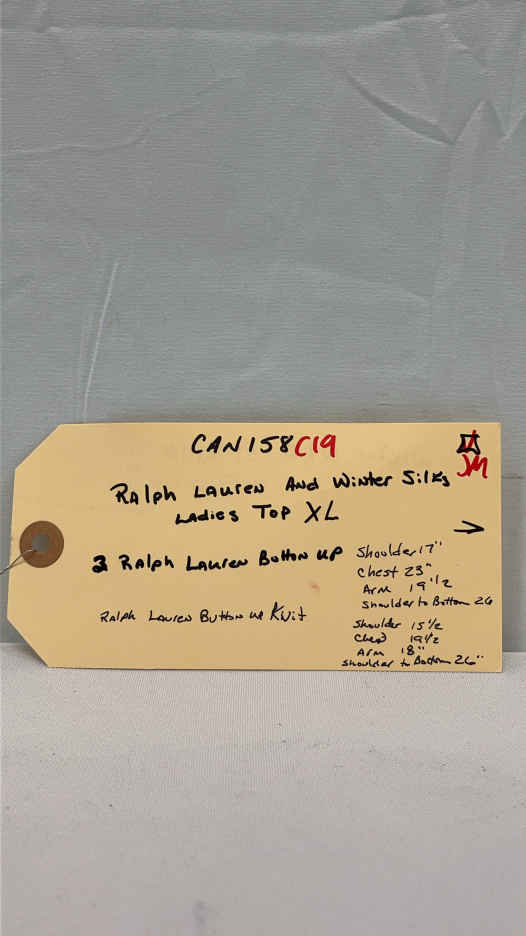 CAN158C19
JM
Ralph Lauren And Winter Silks
Ladies Top XL
2 Ralph Lauren Button up
Shoulder 17"
Chest 23"
Arm 19 1/2
Shoulder to Bottom 26
Ralph Lauren Button up Knit
Shoulder 15 1/2
Chest 19 1/2
Arm 18"
Shoulder to Bottom 26"